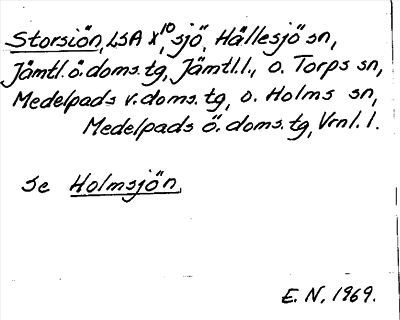 Storsiön, LSA X¹⁰, sjö, Hällesjö sn,
Jämtl. ö. doms. tg, Jämtl. l., o. Torps sn,
Medelpads v. doms. tg, o. Holms sn,
Medelpads ö. doms. tg, Vrnl. l.
Se Holmsjön.
E. N. 1969.